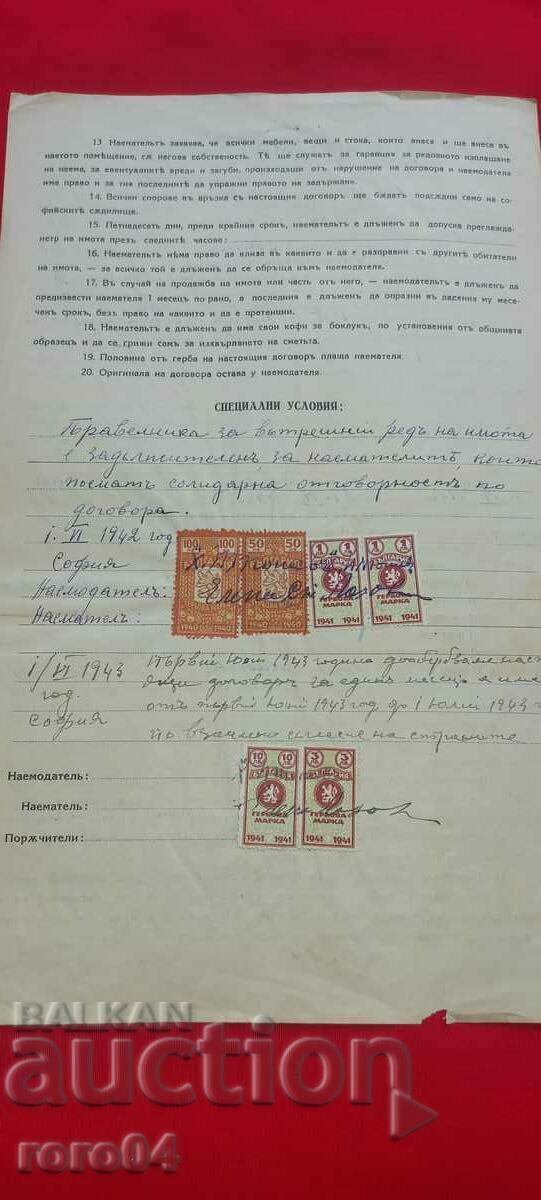 13 Наемательтъ заявява, че всички мебели, вещи и стока, които внася и ще внесе въ
наетото помѣщение, сѫ негова собственость. Тѣ ще служатъ за гаранция за редовното изплащане
на наема, за евентуалнитѣ вреди и загуби, произходящи отъ нарушение на договора и наемодателя
има право и за тия последнитѣ да упражни правото на задържане.
14. Всички спорове въ връзка съ настоящия договоръ ще бѫдатъ подсѫдни само на со-
фийскитѣ сѫдилища.
15. Петнадесеть дни, преди крайния срокъ, наемательтъ е длъженъ да допуска преглежда-
нето на имота презъ следнитѣ часове:
16. Наемательтъ нѣма право да влиза въ каквито и да е разправии съ другитѣ обитатели
на имота, — за всичко той е длъженъ да се обръща къмъ наемодателя.
17. Въ случай на продажба на имота или часть отъ него, — наемодательтъ е длъженъ да
предизвести наемателя 1 месецъ по рано, а последния е длъженъ да опразни въ дадения му месе-
ченъ срокъ, безъ право на каквито и да е претенции.
18. Наемательтъ е длъженъ да има свои кофи за боклукъ, по установения отъ общината
образецъ и да се грижи самъ за изхвърлянето на сметьта.
19. Половина отъ герба на настоящия договоръ плаща наемателя
20. Оригинала на договора остава у наемодателя.
СПЕЦИАЛНИ УСЛОВИЯ:
за вѫтрешния редъ на имота
е задължителенъ за наемателитѣ, които
поематъ солидарна отговорность по
договора.
1. VI 1942 год
София
Наемодатель:
Наематель:
100 100 50 50
1 БЪЛГАРИЯ 1 1 БЪЛГАРИЯ 1
ГЕРБОВА МАРКА ГЕРБОВА МАРКА
1941 1941 1941 1941
1/VI 1943 Първий Юний 1943 година
год. договоръ за единъ месецъ а име
София отъ първий Юний 1943 год. до 1 Юлий 1943 г
по взаимно съгласие на странитѣ
Наемодатель:
Наематель:
Порѫчители:
10 ЛВ. 10 ЛВ. 3 ЛВ. 3 ЛВ.
БЪЛГАРИЯ БЪЛГАРИЯ
ГЕРБОВА МАРКА ГЕРБОВА МАРКА
1941 1941 1941 1941
BALKAN
auction
roro04